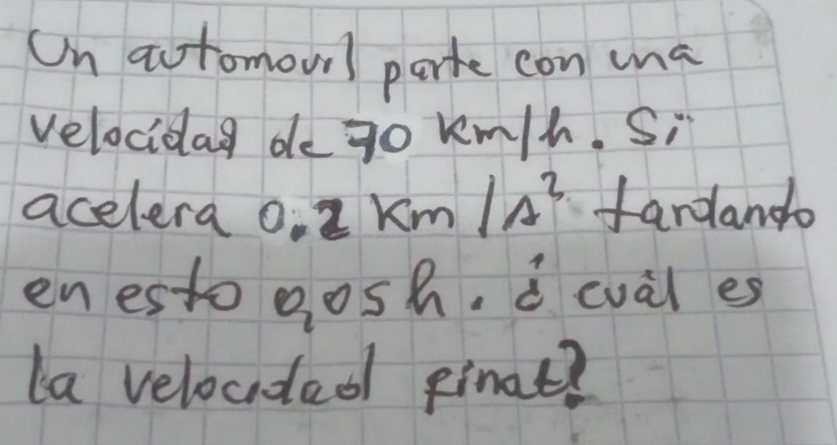 Un automovil parte con una
velocidad de 70 km/h. Si
acelera 0.2 Km/s² tardando
en esto 0,05h. ¿ cuál es
la velocidad final?